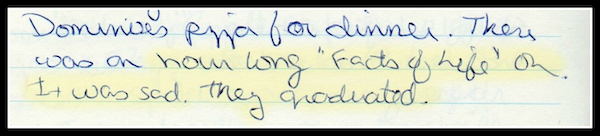 Domino's pizza for dinner. There
was an hour long "Facts of Life" on.
It was sad. They graduated.